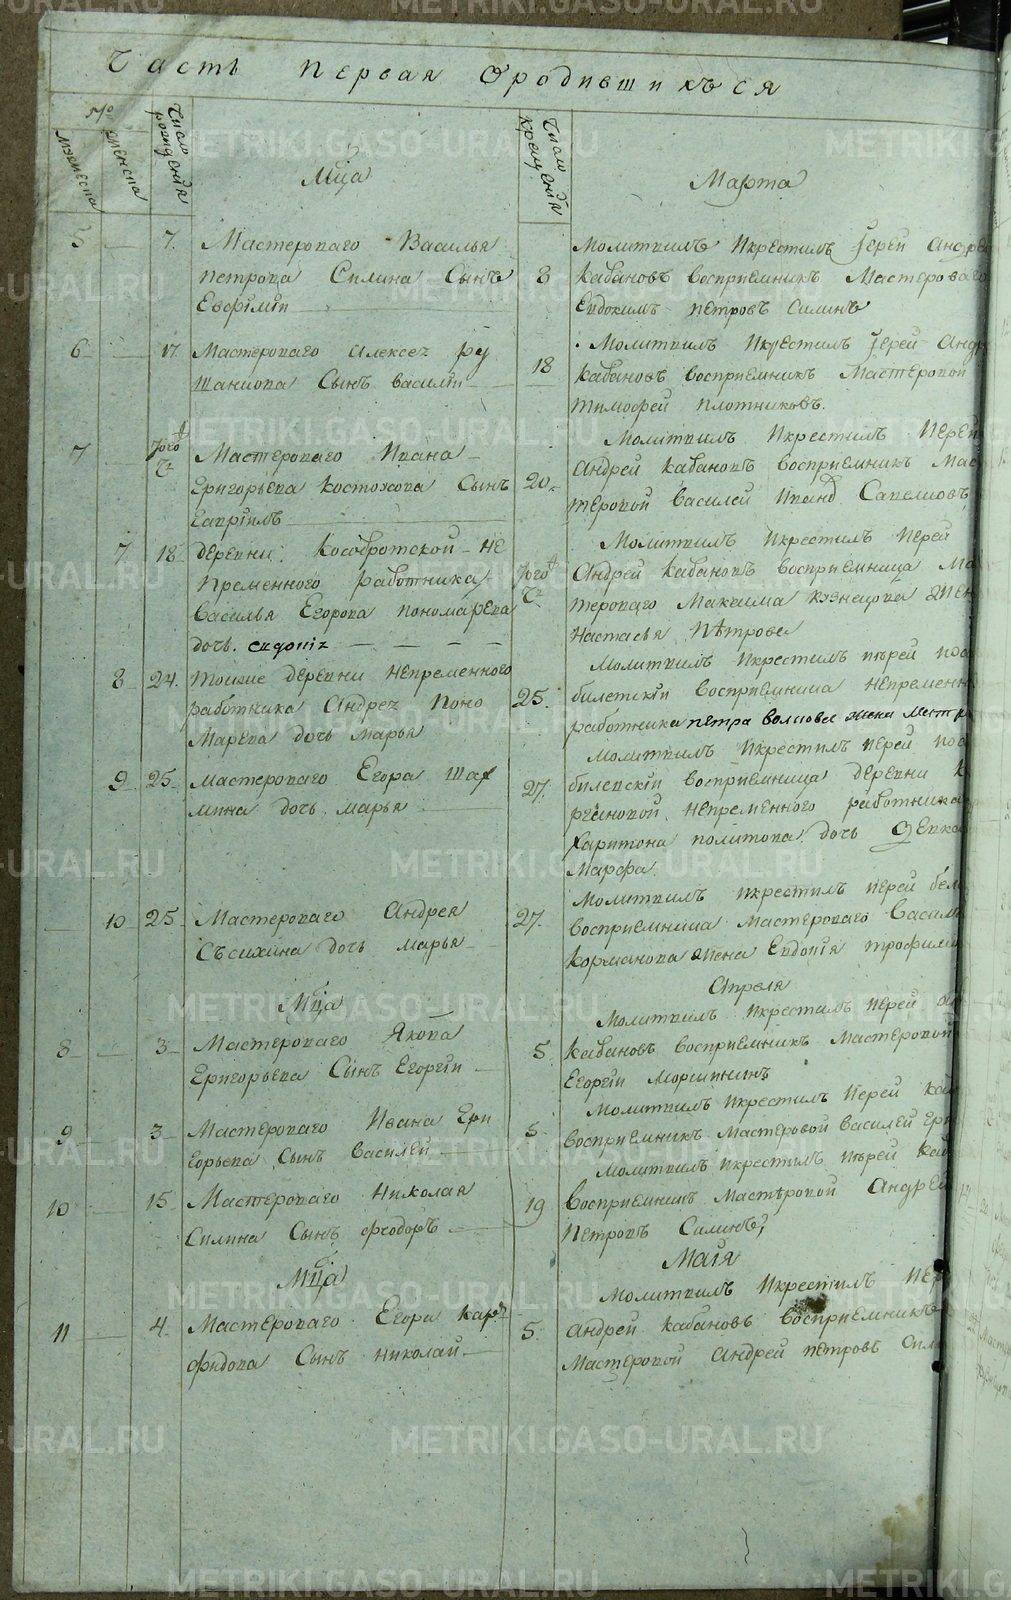 Часть первая Ородившихъся
№
мужеска
женска
Число рождения
Мца
Число крещения
Марта
5 7. Мастероваго Василья
петрова Силина Сынъ
Евфiмiи
8 молитвилъ Икрестилъ Iерей Андре
Кабановъ восприемникъ Мастероваго
Евдокимъ петровъ Силинъ
6 17. Мастероваго Алексея Ру
Сынъ василiи
18 Молитвилъ Икрестилъ Iерей Анд
Кабановъ восприемникъ Мастеровой
Тимофей плотниковъ.
7 того Чи Мастероваго Ивана
Григорьева Костоусова Сынъ
Гаврiилъ
20. Молитвилъ Икрестилъ Iерей
Андрей Кабановъ восприемникъ Мас
теровой Василей
7 18 деревни Кособротской не
пременного работника
Василья Егорова пономарева
дочь.
того Чи Молитвилъ Икрестилъ Iерей
Андрей Кабановъ восприемница Мас
тероваго Максима Кузнецова жен
Настасья Пѣтрова
8 24. тоиже деревни непременного
работника Андрея поно
Марева дочь марья
25. Молитвилъ Икрестилъ iерей под
билетскiи восприемница непременн
работника петра волкова жена
9 25. мастероваго Егора Ша
мина дочь марья
27. молитвилъ Икрестилъ iерей под
восприемница деревни К
непременного работника
Харитона политова дочь Девка
Марфа.
10 25 Мастероваго Андрея
дочь марья
27. Молитвилъ икрестилъ iерей
восприемница мастероваго Васил
Корманова жена Евдокiя трофим
Мца Апреля
8 3 Мастероваго Якова
Григорьева Сынъ Егоргiи
5 Молитвилъ Икрестилъ iерей
Кабановъ восприемникъ мастеровой
Егоргiи
9 3 мастероваго Ивана Гри
горьева Сынъ василей
5 Молитвилъ Икрестилъ Iерей Каб
восприемникъ мастеровой василей Гри
10 15 Мастероваго Николая
Силина Сынъ Феодоръ
19 молитвилъ икрестилъ iерей Каб
восприемникъ Мастеровой Андрей
Петровъ Силинъ,
Мца Маiя
11 4. Мастероваго Егора Кар
Сынъ николай
5. Молитвилъ Икрестилъ iер
Андрей Кабановъ восприемникъ
Мастеровой Андрей петровъ Сил
METRIKI.GASO-URAL.RU